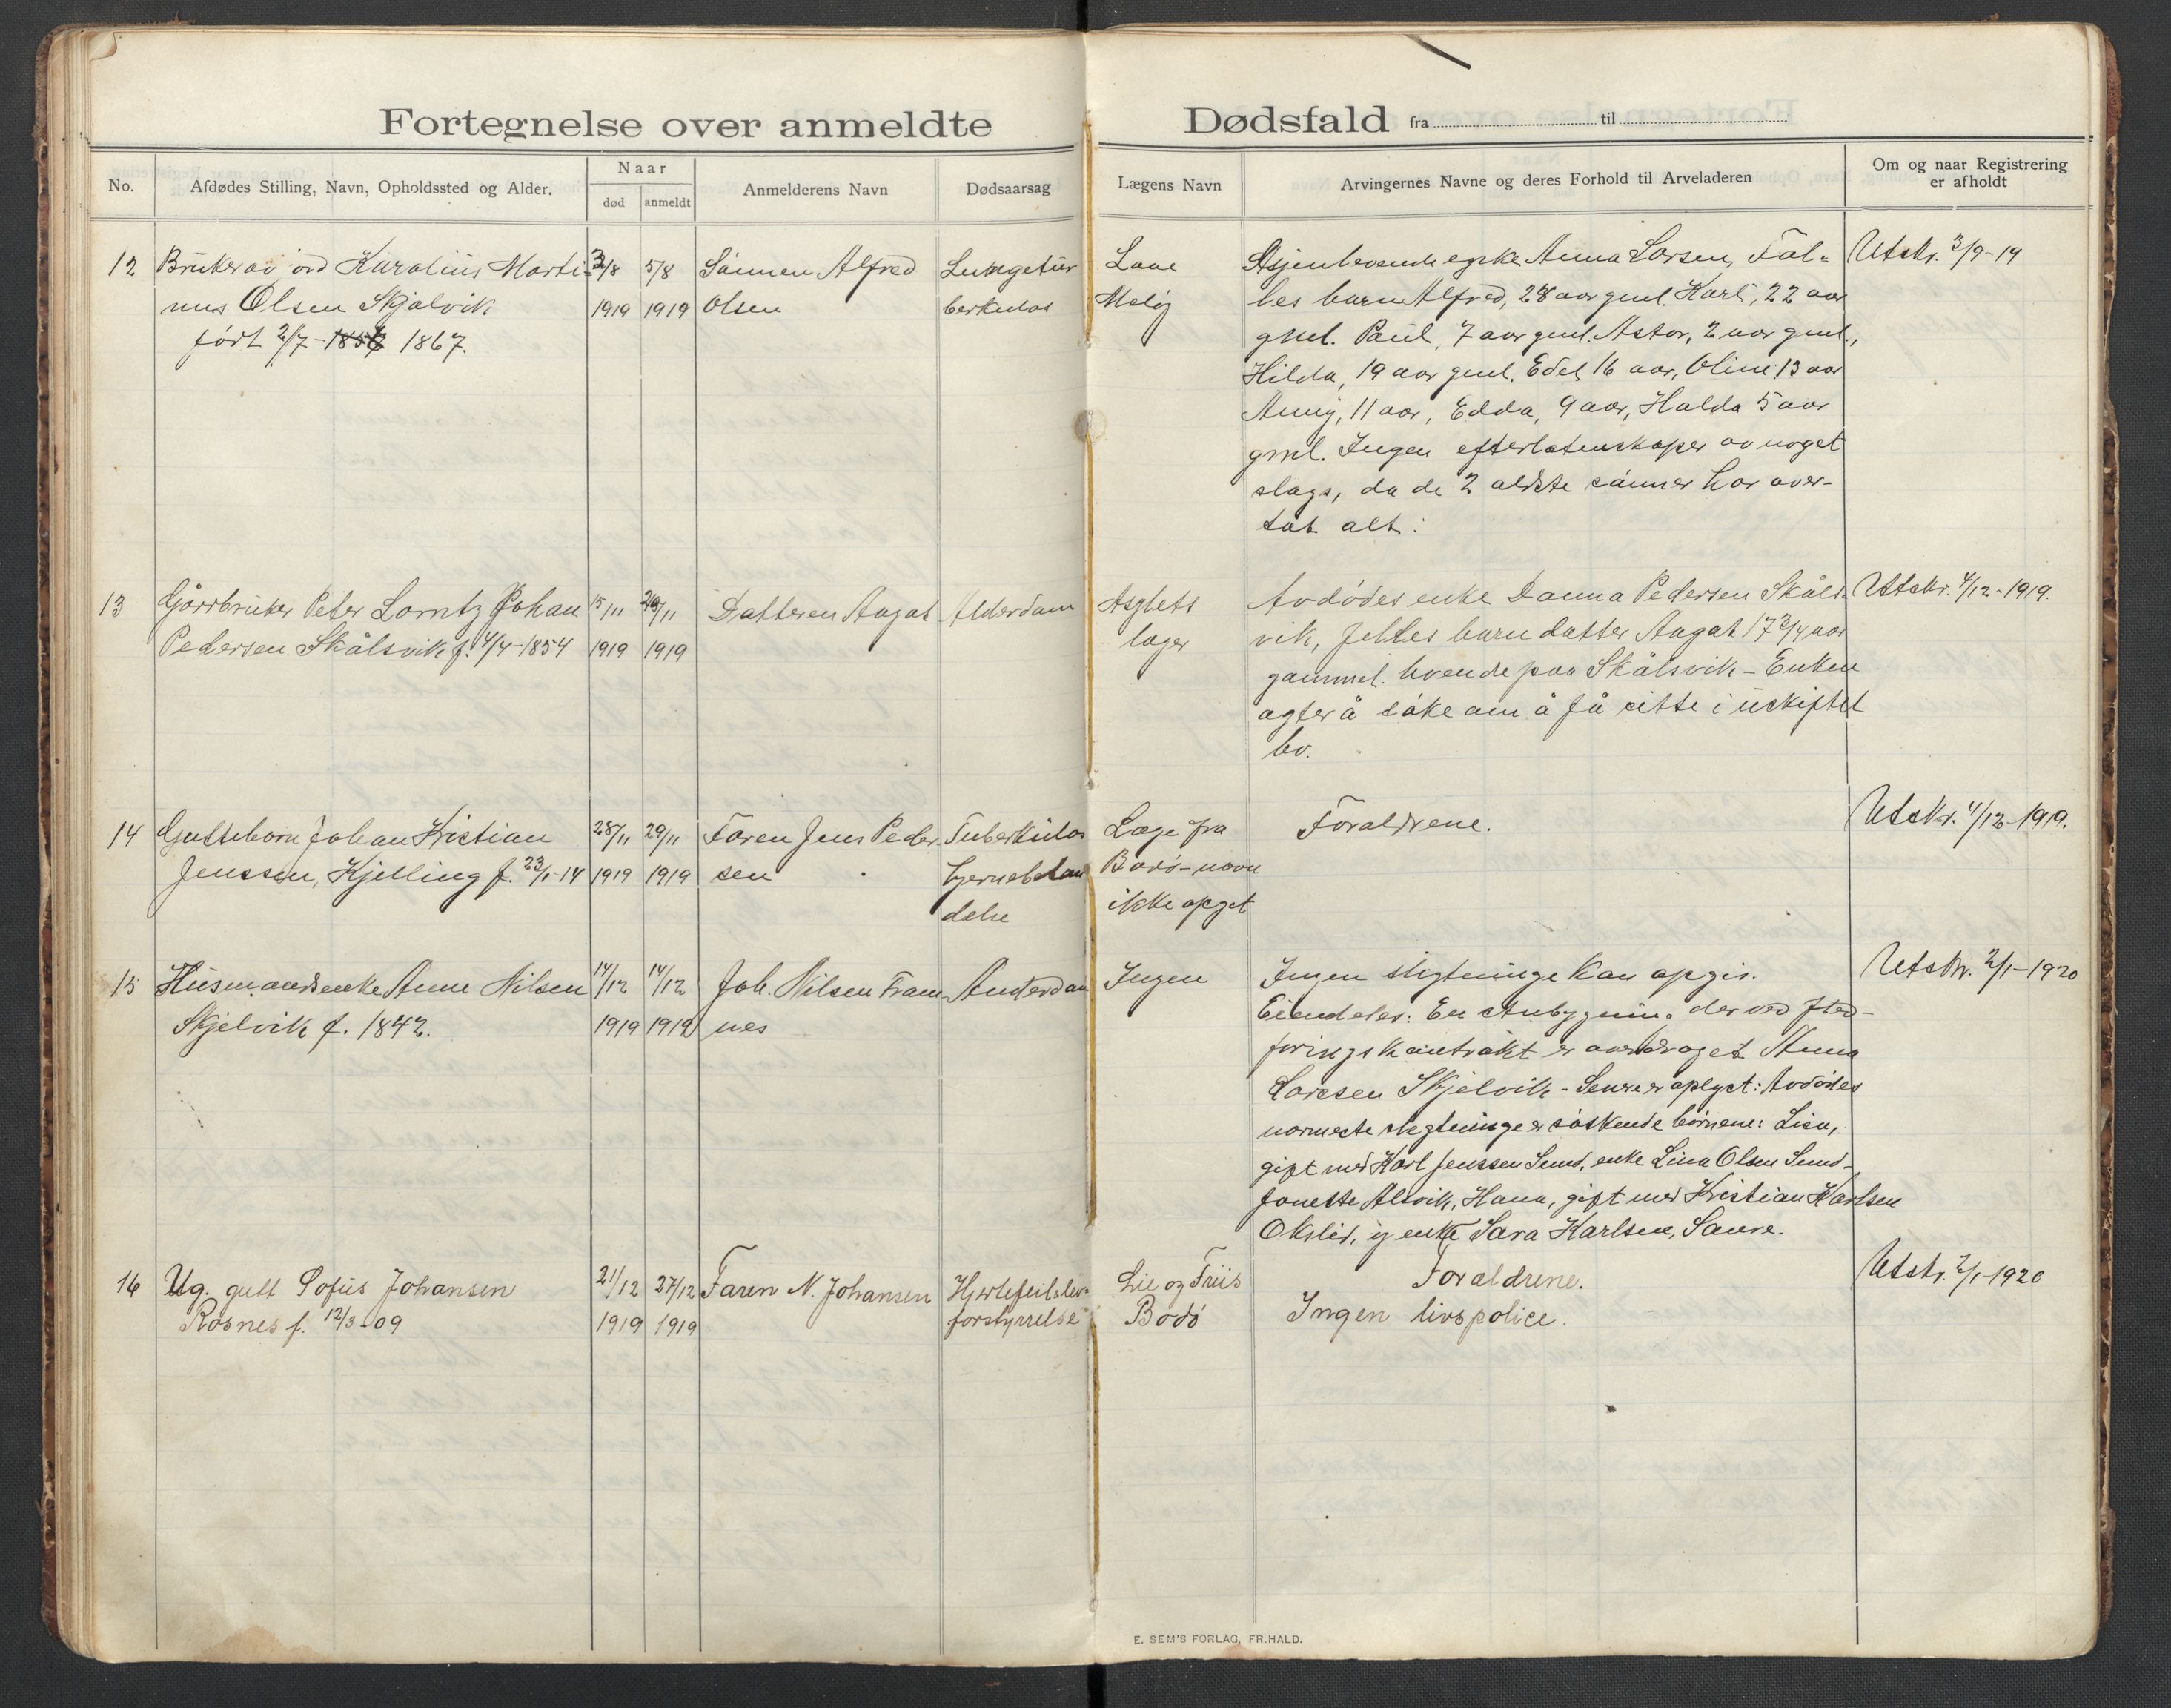 Fortegnelse over anmeldte Dødsfald fra til
No.
Afdødes Stilling, Navn, Opholdssted og Alder.
Naar
død
anmeldt
Anmelderens Navn
Dødsaarsag
Lægens Navn
Arvingernes Navne og deres Forhold til Arveladeren
Om og naar Registrering
er afholdt
12
Bruker av jord Karolius Marti-
nus Olsen Skjelvik
født 2/7- 1867.
3/8
1919
5/8
1919
Sønnen Alfred
Olsen
Lungetur
berkulos
Meløy
Gjenlevende egke Anna Larsen, Fæl-
les barn Alfred, 28 aar gml. Karl, 22 aar
gml. Paul, 7 aar gml. Astor, 2 aar gml.,
Hilda, 19 aar gml. Edel 16 aar, Oline 13 aar
Anny, 11 aar, Edda, 9 aar, Halda 5 aar
gml. Ingen efterlatenskaper av noget
slags, da de 2 ældste sønner har over-
tat alt.
Utskr. 3/9-19
13
Gårdbruker Peter Lorntz Johan
Pedersen Skålsvik f. 4/4-1854
15/11
1919
26/11
1919
Datteren Aagot
Alderdom
læger
Avdødes enke Danna Pedersen Skåls-
vik, felles barn datter Aagot 17 3/4 aar
gammel. boende paa Skålsvik - Enken
agter å søke om å få sitte i uskiftet
bo.
Utskr. 4/12-1919.
14
Guttebarn Johan Kristian
Jenssen, Kjelling f. 23/1-14
28/11
1919
29/11
1919
Faren Jens Peder-
sen
Tuberkuløs
hjernebetæn
delse
Læge fra
Bodø-navn
ikke opgit
Forældrene.
Utskr. 4/12-1919.
15
Husmandsenke Anne Nilsen
Skjelvik f. 1842.
14/12
1919
14/12
1919
Joh. Nilsen Fram-
nes
Ingen
Ingen slegtninge kan opgis.
Eiendeler: En Aabygning der ved fled-
føringskontrakt er overdraget Anna
Larsen Skjelvik - Senere er oplyst: Avdødes
nærmeste slegtninge er søskende børnene: Lisa,
gift med Karl Jenssen Sund, enke Lina Olsen Sund-
Jonette Alsvik, Hana, gift med Kristian Karlsen
Okslid, og enke Sara Karlsen, Saure.
Utskr. 2/1-1920
16
Ug. gutt Sofus Johansen
Rosnes f. 12/3-09
21/12
1919
27/12
1919
Faren N. Johansen
forstyrrelse
Lie og Friis
Bodø
Forældrene.
Ingen livspolice.
Utskr. 2/1-1920
E. SEM'S FORLAG, FR.HALD.